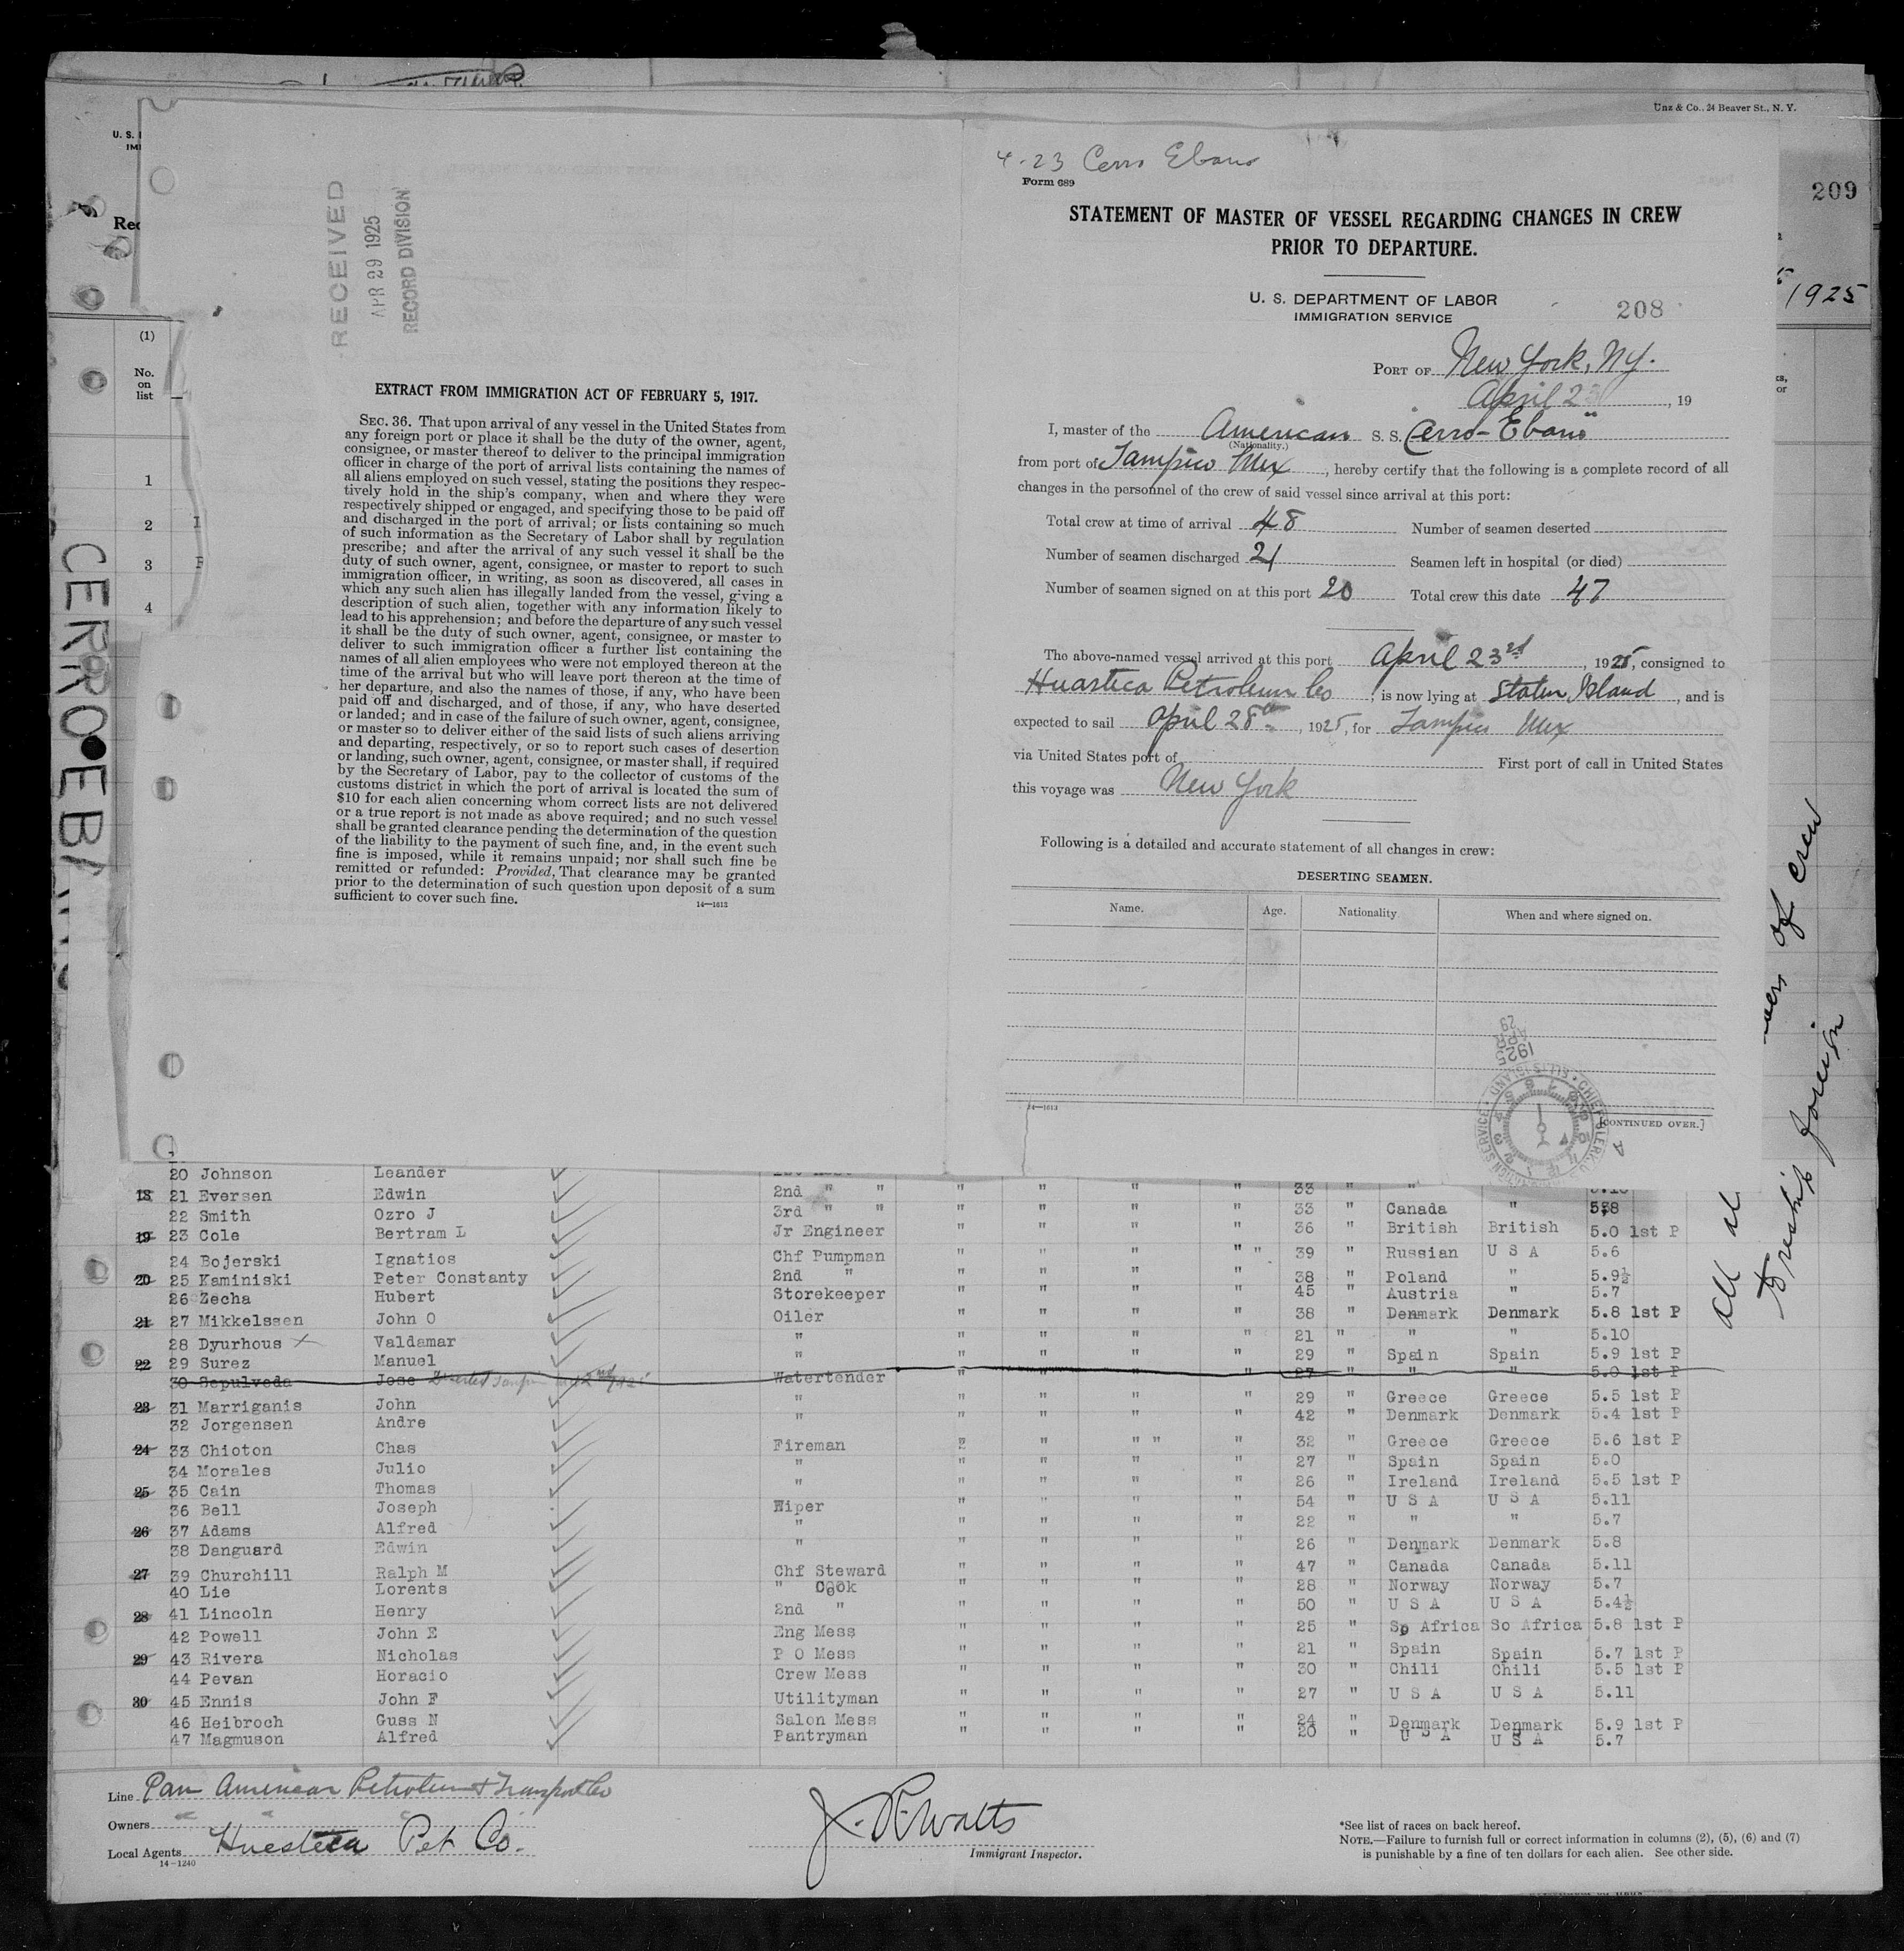 Unz & Co., 24 Beaver St., N. Y.
U. S.
209
1925
Rec
(1)
No.
on
list
1
2
3
4
CERRO EBA
RECEIVED
APR 29 1925
RECORD DIVISION
EXTRACT FROM IMMIGRATION ACT OF FEBRUARY 5, 1917.
SEC. 36. That upon arrival of any vessel in the United States from
any foreign port or place it shall be the duty of the owner, agent,
consignee, or master thereof to deliver to the principal immigration
officer in charge of the port of arrival lists containing the names of
all aliens employed on such vessel, stating the positions they respec-
tively hold in the ship's company, when and where they were
respectively shipped or engaged, and specifying those to be paid off
and discharged in the port of arrival; or lists containing so much
of such information as the Secretary of Labor shall by regulation
prescribe; and after the arrival of any such vessel it shall be the
duty of such owner, agent, consignee, or master to report to such
immigration officer, in writing, as soon as discovered, all cases in
which any such alien has illegally landed from the vessel, giving a
description of such alien, together with any information likely to
lead to his apprehension; and before the departure of any such vessel
it shall be the duty of such owner, agent, consignee, or master to
deliver to such immigration officer a further list containing the
names of all alien employees who were not employed thereon at the
time of the arrival but who will leave port thereon at the time of
her departure, and also the names of those, if any, who have been
paid off and discharged, and of those, if any, who have deserted
or landed; and in case of the failure of such owner, agent, consignee,
or master so to deliver either of the said lists of such aliens arriving
and departing, respectively, or so to report such cases of desertion
or landing, such owner, agent, consignee, or master shall, if required
by the Secretary of Labor, pay to the collector of customs of the
customs district in which the port of arrival is located the sum of
$10 for each alien concerning whom correct lists are not delivered
or a true report is not made as above required; and no such vessel
shall be granted clearance pending the determination of the question
of the liability to the payment of such fine, and, in the event such
fine is imposed, while it remains unpaid; nor shall such fine be
remitted or refunded: Provided, That clearance may be granted
prior to the determination of such question upon deposit of a sum
sufficient to cover such fine.
14—1613
4-23 Cerro Ebano
Form 689
STATEMENT OF MASTER OF VESSEL REGARDING CHANGES IN CREW
PRIOR TO DEPARTURE.
U. S. DEPARTMENT OF LABOR
IMMIGRATION SERVICE
208
PORT OF New York, NY.
April 23, 19
I, master of the American S. S. Cerro-Ebano
(Nationality.)
from port of Tampico Mex, hereby certify that the following is a complete record of all
changes in the personnel of the crew of said vessel since arrival at this port:
Total crew at time of arrival 48 Number of seamen deserted
Number of seamen discharged 21 Seamen left in hospital (or died)
Number of seamen signed on at this port 20 Total crew this date 47
The above-named vessel arrived at this port April 23rd, 1925, consigned to
Huasteca Petroleum Co, is now lying at Staten Island, and is
expected to sail April 28th, 1925, for Tampico Mex
via United States port of First port of call in United States
this voyage was New York
Following is a detailed and accurate statement of all changes in crew:
DESERTING SEAMEN.
Name. Age. Nationality When and where signed on.
14—1613
[CONTINUED OVER.]
1925
APR
29
20 Johnson Leander
18 21 Eversen Edwin 2nd " " " " " " 33 " "
22 Smith Ozro J 3rd " " " " " " 33 " Canada " 5.8
19 23 Cole Bertram L Jr Engineer " " " " 36 " British British 5.0 1st P
24 Bojerski Ignatios Chf Pumpman " " " " " 39 " Russian U S A 5.6
20 25 Kaminiski Peter Constanty 2nd " " " " " 38 " Poland " 5.9½
26 Zecha Hubert Storekeeper " " " " 45 " Austria " 5.7
21 27 Mikkelssen John O Oiler " " " " 38 " Denmark Denmark 5.8 1st P
28 Dyurhous Valdamar " " " " " 21 " " " 5.10
22 29 Surez Manuel " " " " " 29 " Spain Spain 5.9 1st P
30 Sepulveda Jose Deserted Watertender " " " " 27 " " " 5.0 1st P
23 31 Marriganis John " " " " " 29 " Greece Greece 5.5 1st P
32 Jorgensen Andre " " " " " 42 " Denmark Denmark 5.4 1st P
24 33 Chioton Chas Fireman " " " " " 32 " Greece Greece 5.6 1st P
34 Morales Julio " " " " " 27 " Spain Spain 5.0
25 35 Cain Thomas " " " " " 26 " Ireland Ireland 5.5 1st P
36 Bell Joseph Wiper " " " " 54 " U S A U S A 5.11
26 37 Adams Alfred " " " " " 22 " " " 5.7
38 Danguard Edwin " " " " " 26 " Denmark Denmark 5.8
27 39 Churchill Ralph M Chf Steward " " " " 47 " Canada Canada 5.11
40 Lie Lorents " Cook " " " " 28 " Norway Norway 5.7
28 41 Lincoln Henry 2nd " " " " " 50 " U S A U S A 5.4½
42 Powell John E Eng Mess " " " " 25 " So Africa So Africa 5.8 1st P
29 43 Rivera Nicholas P O Mess " " " " 21 " Spain Spain 5.7 1st P
44 Pevan Horacio Crew Mess " " " " 30 " Chili Chili 5.5 1st P
30 45 Ennis John F Utilityman " " " " 27 " U S A U S A 5.11
46 Heibroch Guss N Salon Mess " " " " 24 " Denmark Denmark 5.9 1st P
47 Magmuson Alfred Pantryman " " " " 20 " U S A U S A 5.7
of crew
to reship foreign
Line Pan American Petroleum & Transport Co
Owners " " "
Local Agents Huesteca Pet Co.
14-1240
J. R. Watts
Immigrant Inspector.
*See list of races on back hereof.
NOTE.—Failure to furnish full or correct information in columns (2), (5), (6) and (7)
is punishable by a fine of ten dollars for each alien. See other side.